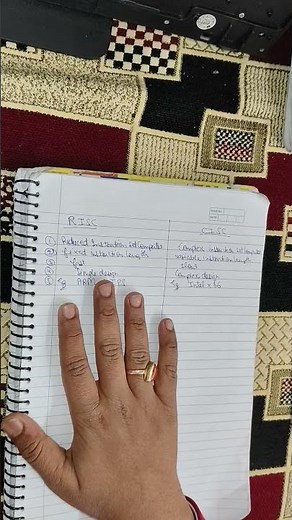 RISC
① Reduced Instruction Set Computer
② fixed instruction length
③ fast
④ Simple design
⑤ Eg ARM
Complex instruction Set Computer
variable instruction length
Complex design
Eg Intel x 86